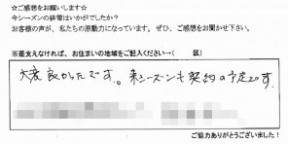 ☆ご感想をお願いします☆
今シーズンの俳誉はいかがでしたか?
お客様の声が、私たちの原動力になっています。ぜひ、ご感想をお聞かせ下さい。
※差支えなければ、お住まいの地域をご記入ください→( 区)
大変良かったです。来シーズンも契約の予定です。
ご協力ありがとうございました!